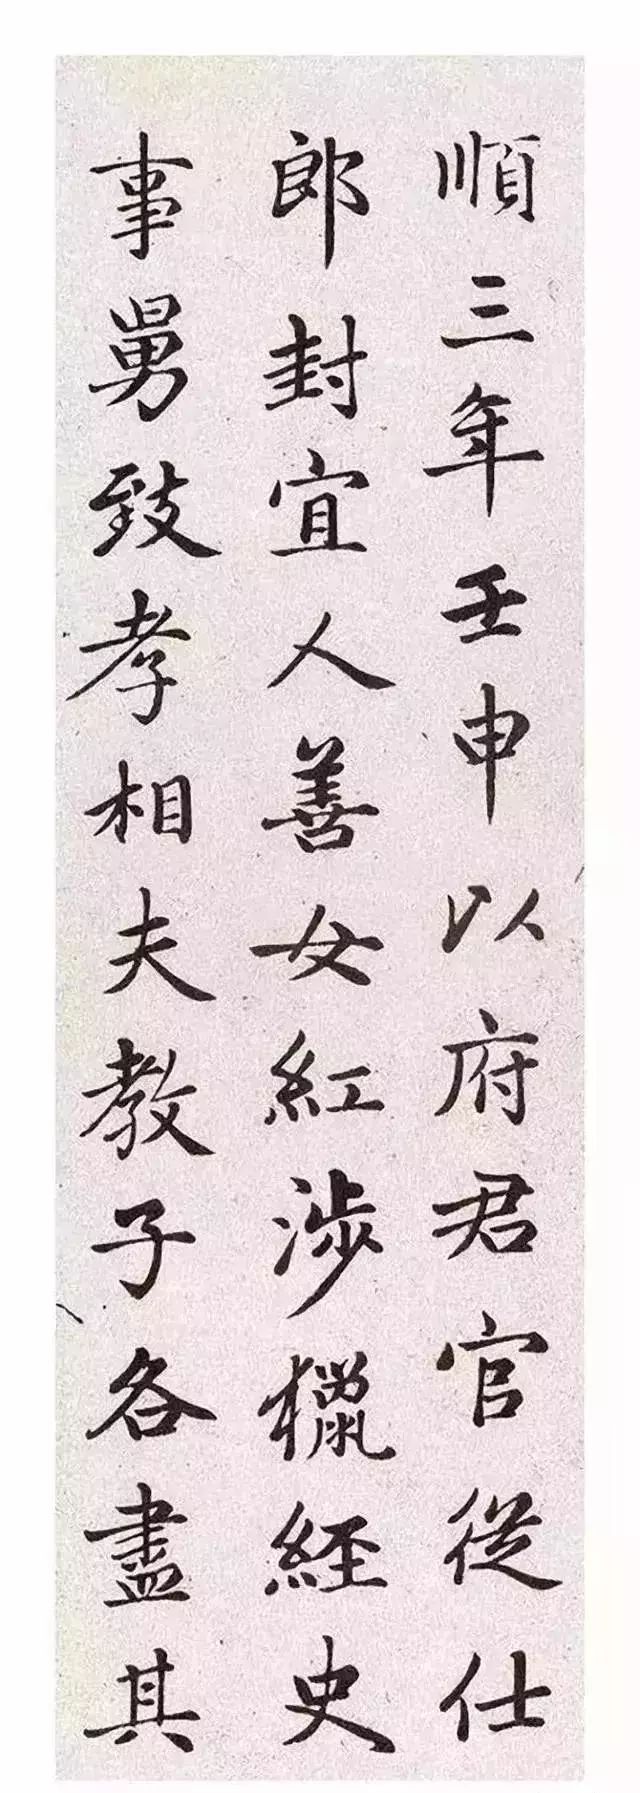 順三年壬申以府君官從仕
郎封宜人善女紅涉獵經史
事舅致孝相夫教子各盡其